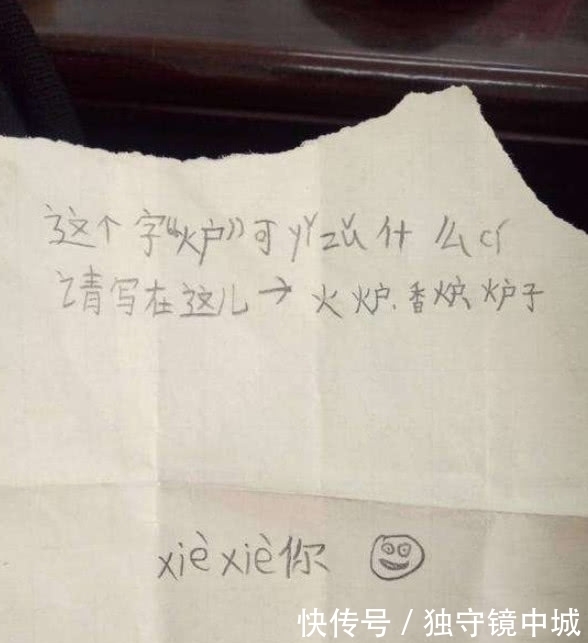 这个字“炉”可yǐzǔ什么cí
请写在这儿→火炉、香炉、炉子
xièxiè你
快传号/独守镜中城